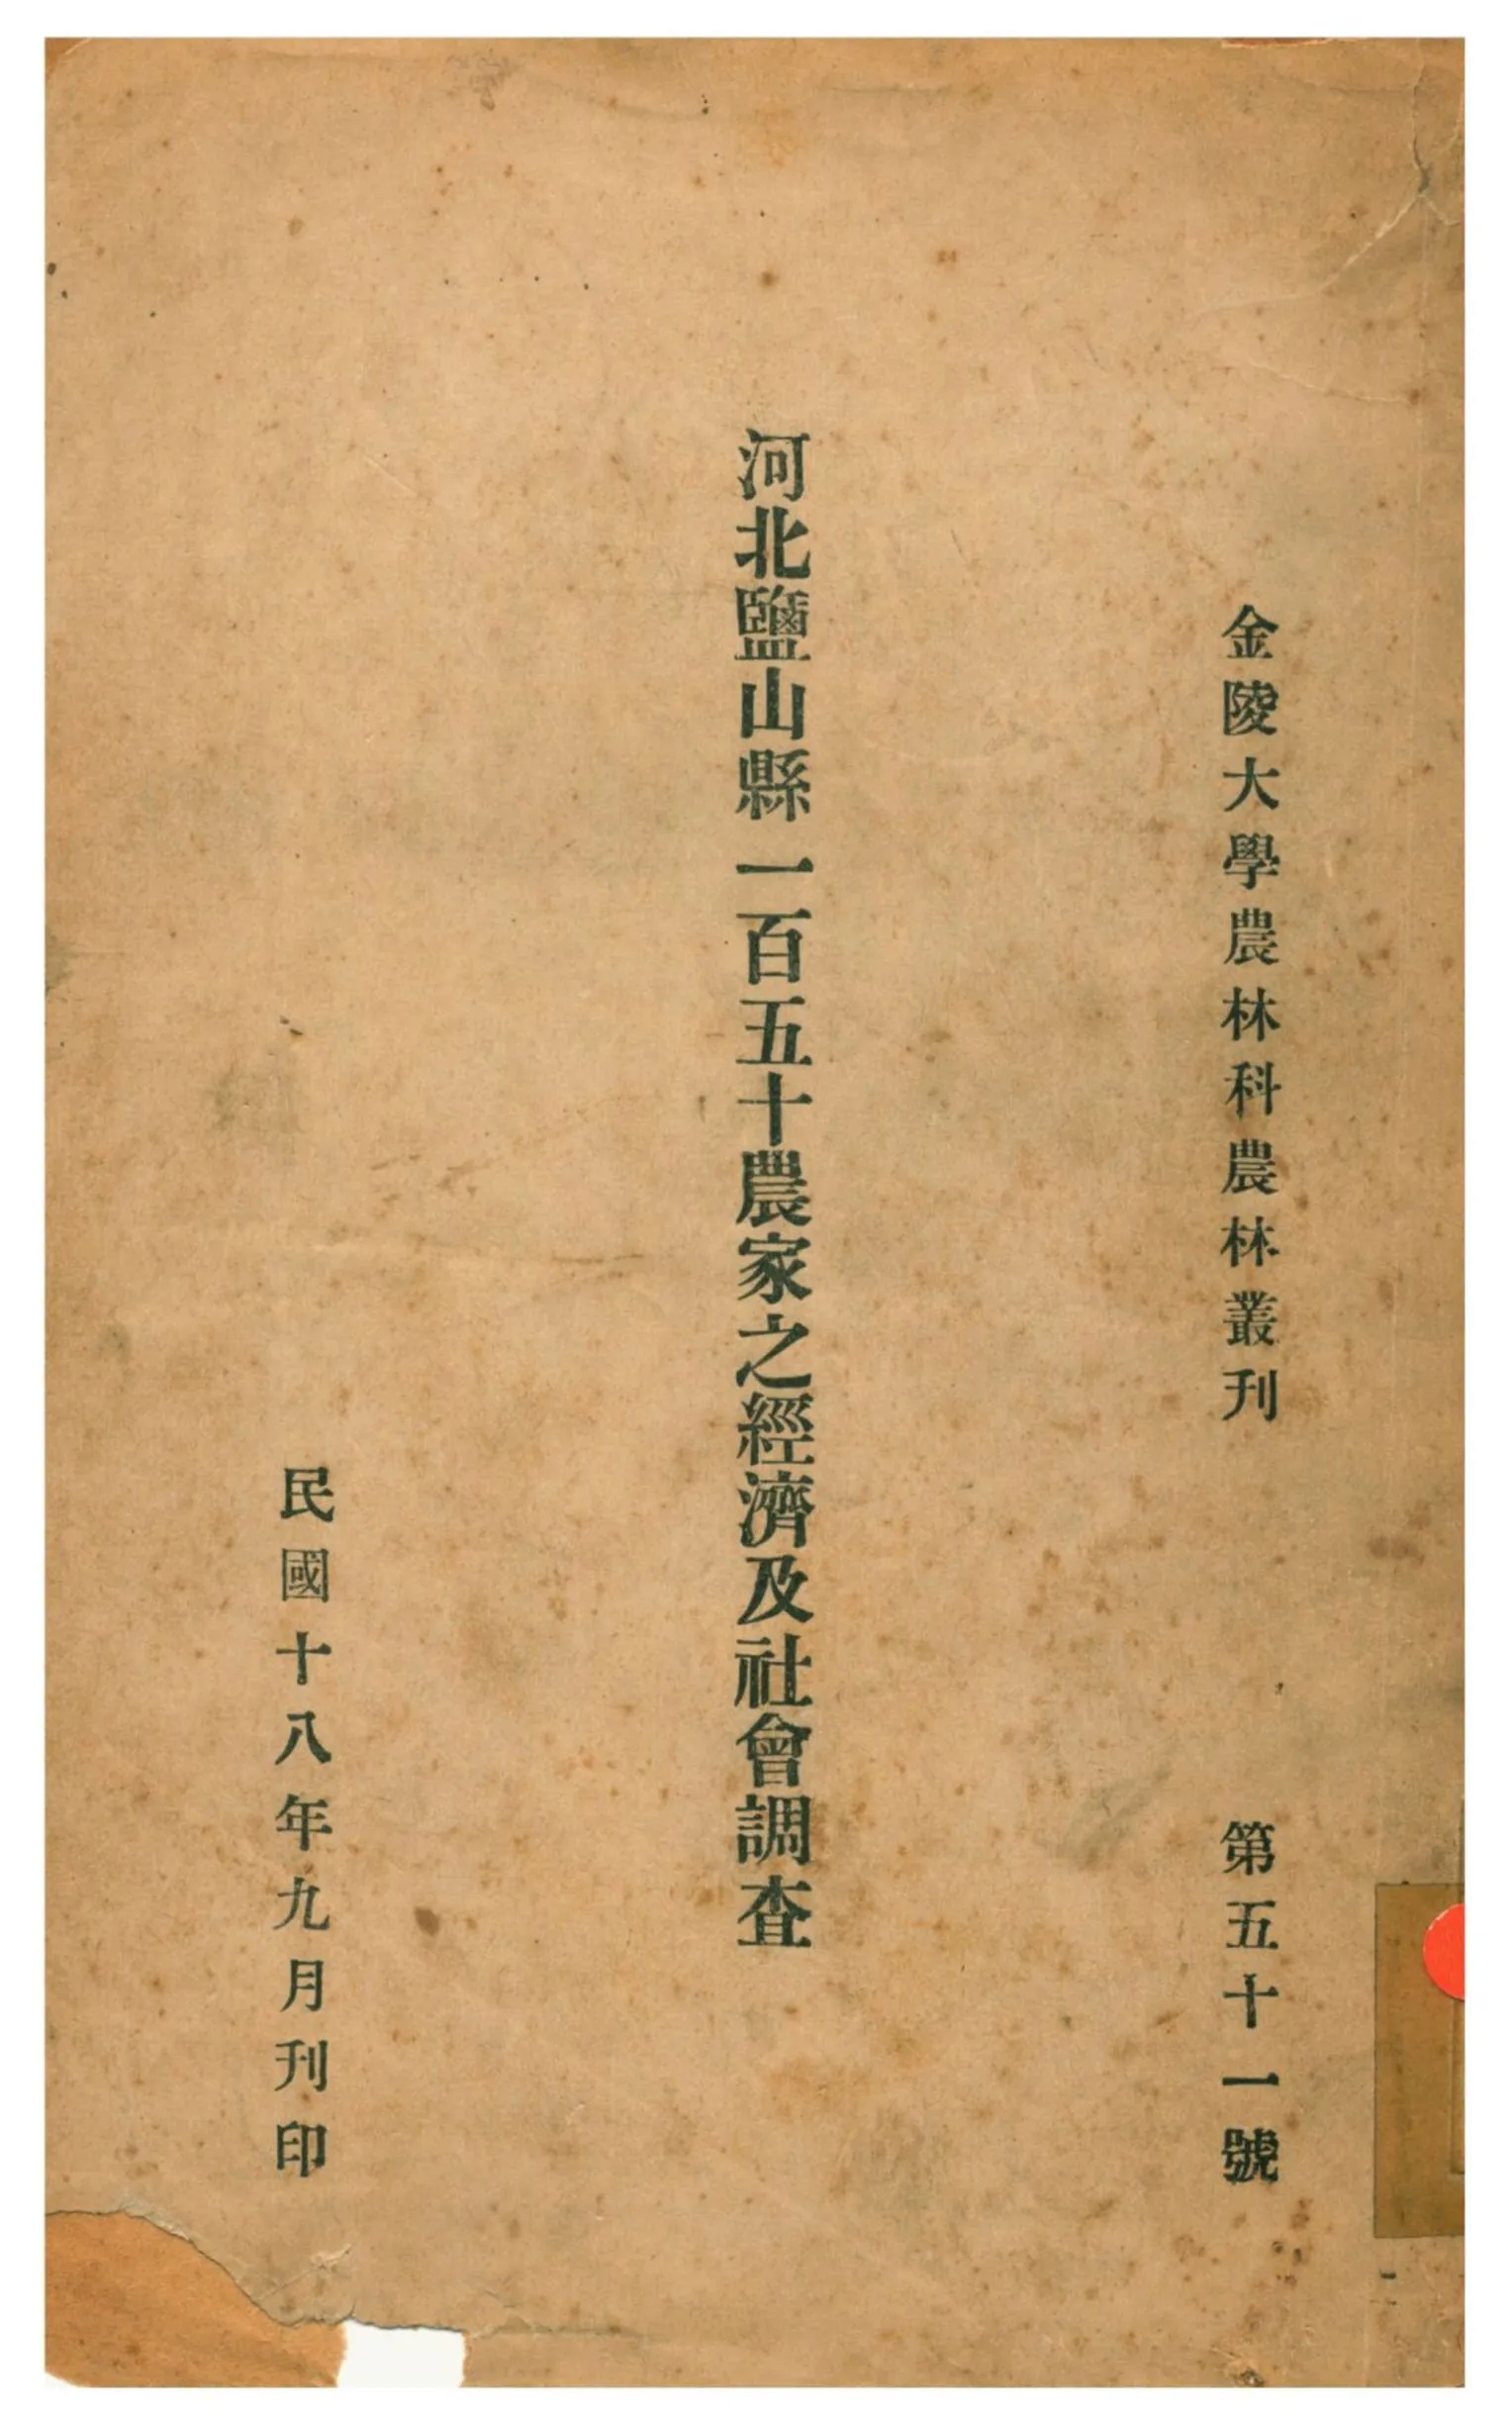 金陵大學農林科農林叢刊 第五十一號
河北鹽山縣一百五十農家之經濟及社會調查
民國十八年九月刊印